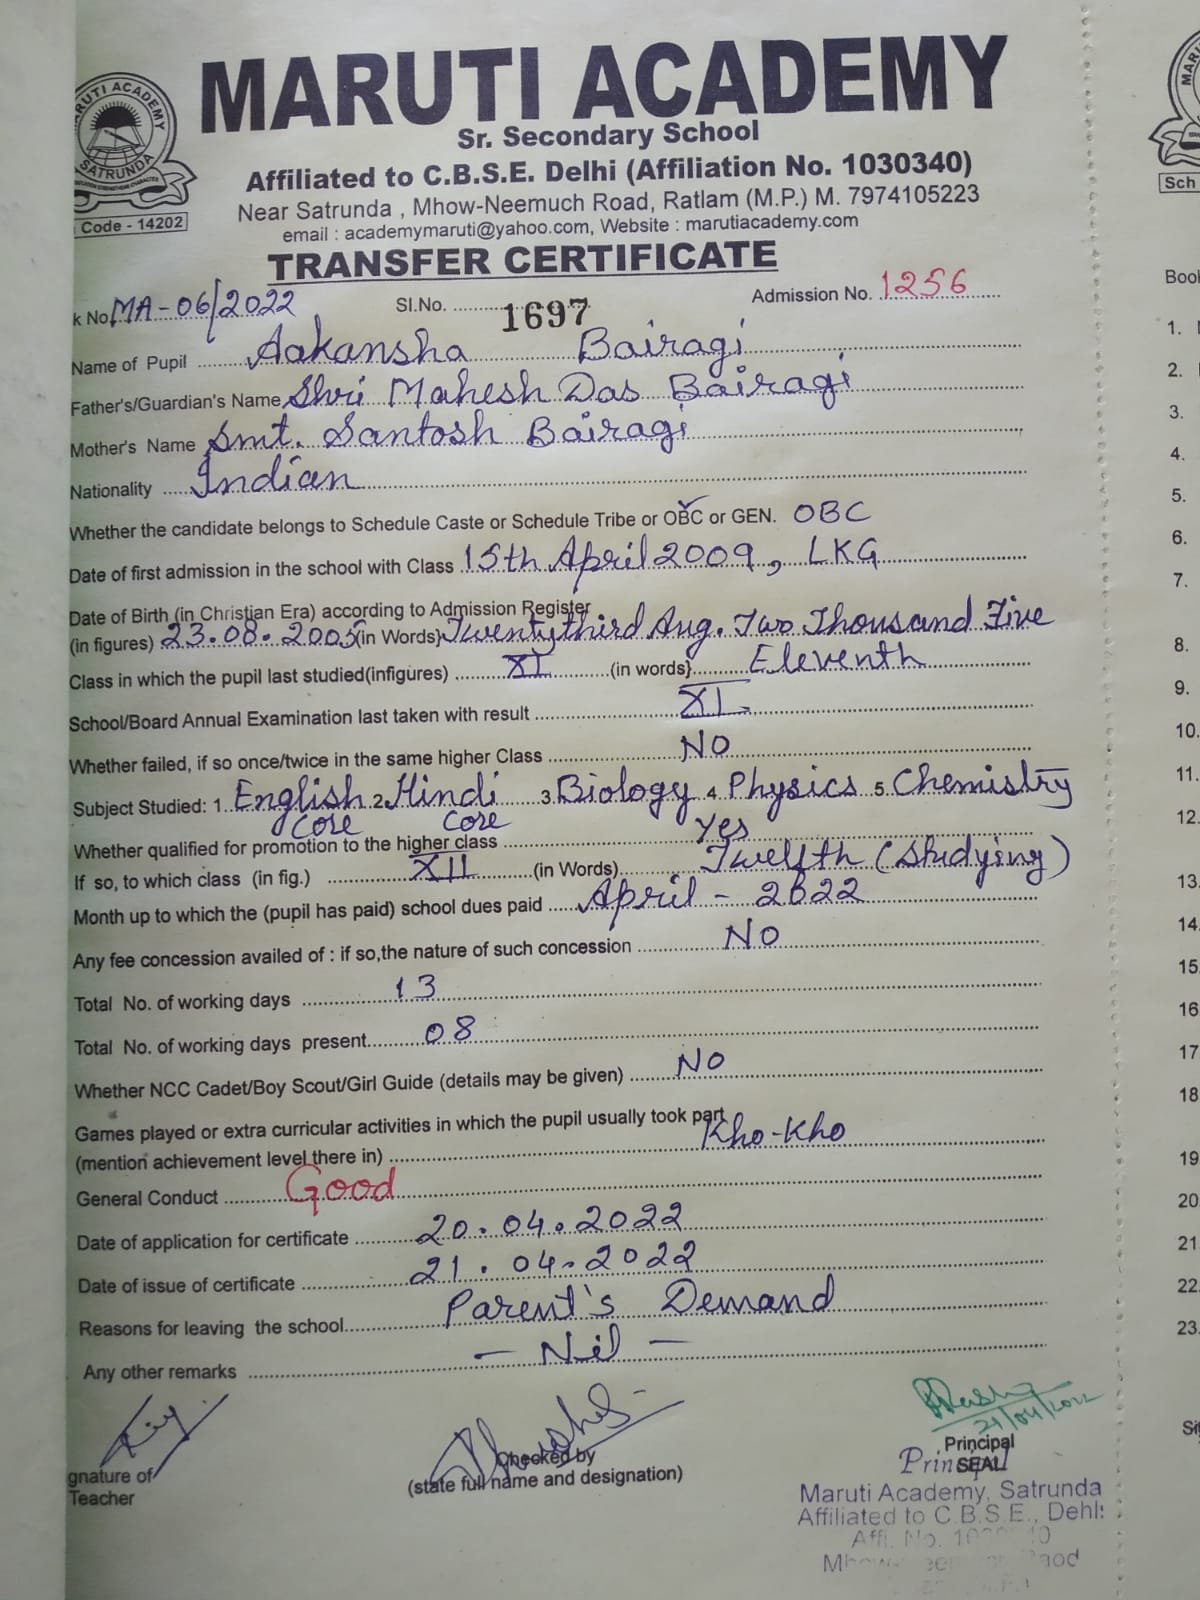 MARUTI ACADEMY
SATRUNDA
Code - 14202
MARUTI ACADEMY
Sr. Secondary School
Affiliated to C.B.S.E. Delhi (Affiliation No. 1030340)
Near Satrunda , Mhow-Neemuch Road, Ratlam (M.P.) M. 7974105223
email : academymaruti@yahoo.com, Website : marutiacademy.com
TRANSFER CERTIFICATE
k No. MA-06/2022 Sl.No. 1697 Admission No. 1256
Name of Pupil Aakansha Bairagi
Father's/Guardian's Name Shri Mahesh Das Bairagi
Mother's Name Smt. Santosh Bairagi
Nationality Indian
Whether the candidate belongs to Schedule Caste or Schedule Tribe or OBC or GEN. OBC
Date of first admission in the school with Class 15th April 2009, LKG
Date of Birth (in Christian Era) according to Admission Register
(in figures) 23.08.2005 (in Words) Twenty third Aug. Two Thousand Five
Class in which the pupil last studied(infigures) XI (in words} Eleventh
School/Board Annual Examination last taken with result XI
Whether failed, if so once/twice in the same higher Class NO
Subject Studied: 1. English Core 2. Hindi Core 3. Biology 4. Physics 5. Chemistry
Whether qualified for promotion to the higher class Yes
If so, to which class (in fig.) XII (in Words) Twelfth (Studying)
Month up to which the (pupil has paid) school dues paid April - 2022
Any fee concession availed of : if so,the nature of such concession NO
Total No. of working days 13
Total No. of working days present 08
Whether NCC Cadet/Boy Scout/Girl Guide (details may be given) NO
Games played or extra curricular activities in which the pupil usually took part
(mention achievement level there in) Kho-Kho
General Conduct Good
Date of application for certificate 20.04.2022
Date of issue of certificate 21.04.2022
Reasons for leaving the school Parent's Demand
Any other remarks - Nil -
21/04/2022
gnature of
Teacher
Checked by
(state full name and designation)
Principal
SEAL
Principal
Maruti Academy, Satrunda
Affiliated to C.B.S.E., Dehli
Affi. No.
Sch
Book
1.
2.
3.
4.
5.
6.
7.
8.
9.
10.
11.
12.
13.
14.
15.
16
17
18
19.
20.
21.
22.
23.